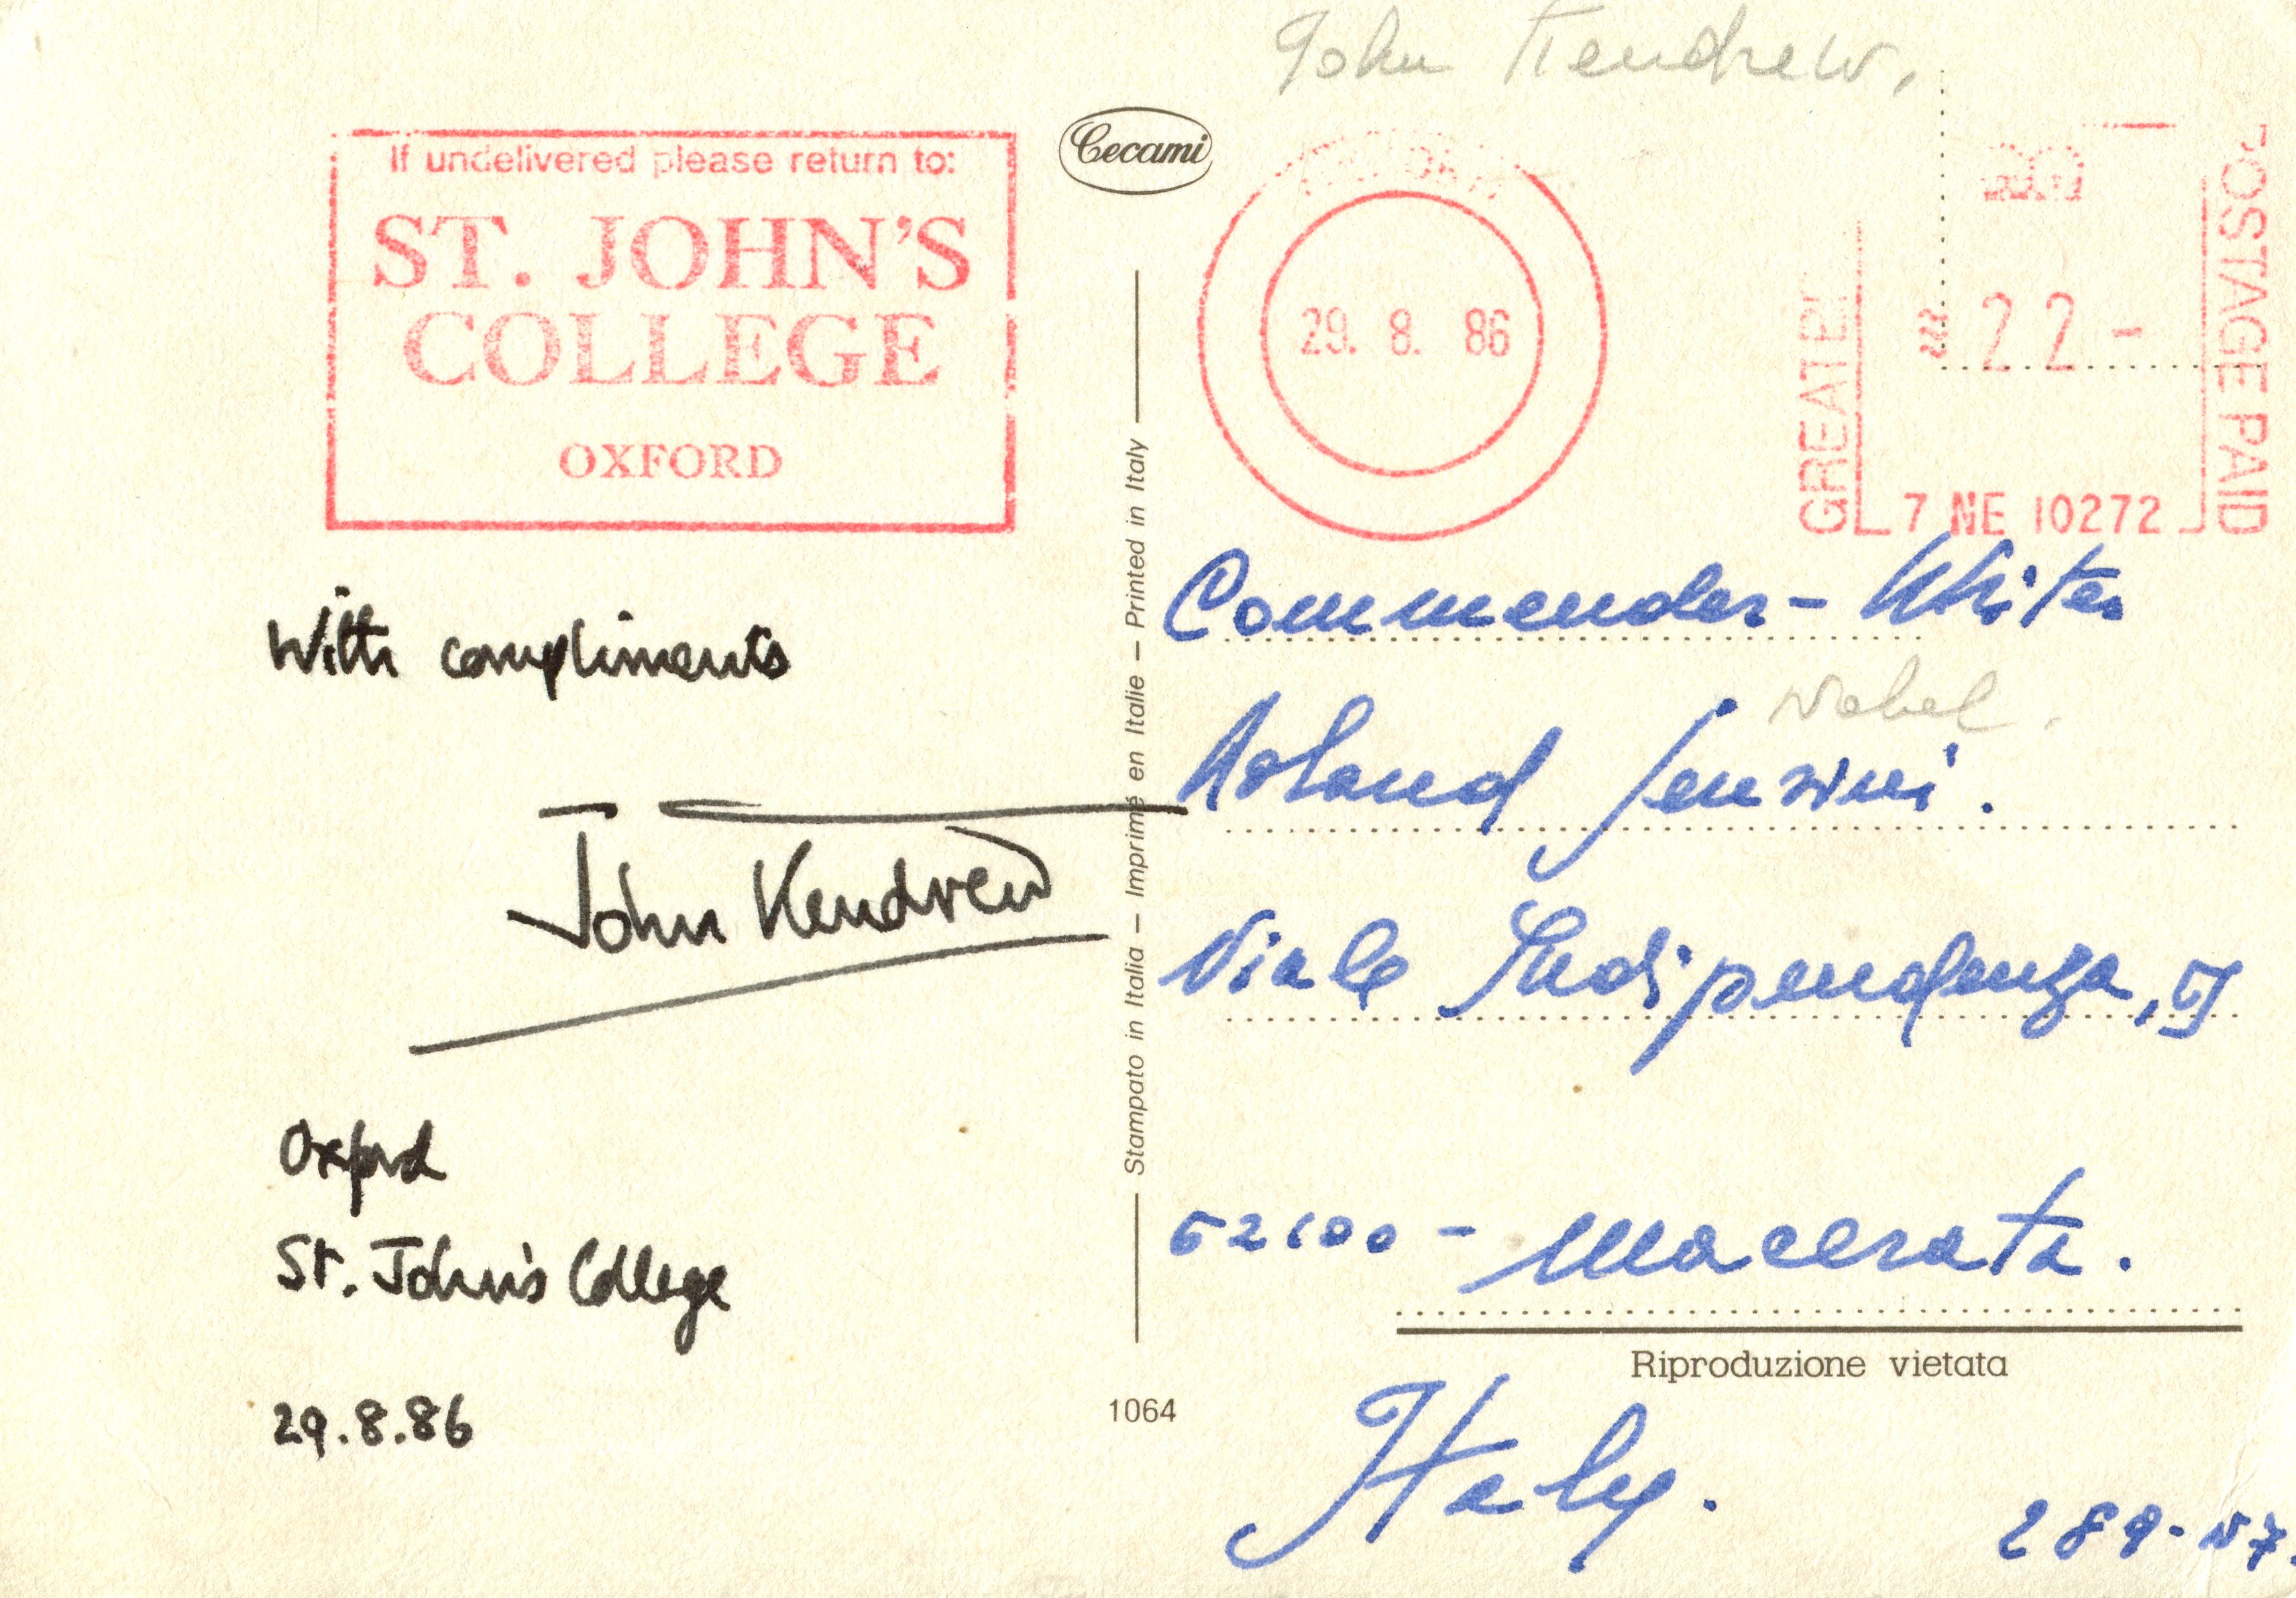 John Kendrew.
If undelivered please return to:
ST. JOHN'S
COLLEGE
OXFORD
Cecami
29. 8. 86
22-
GREAT
POSTAGE PAID
7 NE 10272
With compliments
John Kendrew
Oxford
St. John's College
29.8.86
Stampato in Italia – Imprimé en Italie – Printed in Italy
1064
Commender - Writer
Nobel.
Roland Jenzini.
Viale Indipendenza, 5
62100 - Macerata.
Riproduzione vietata
Italy.
289-N7.